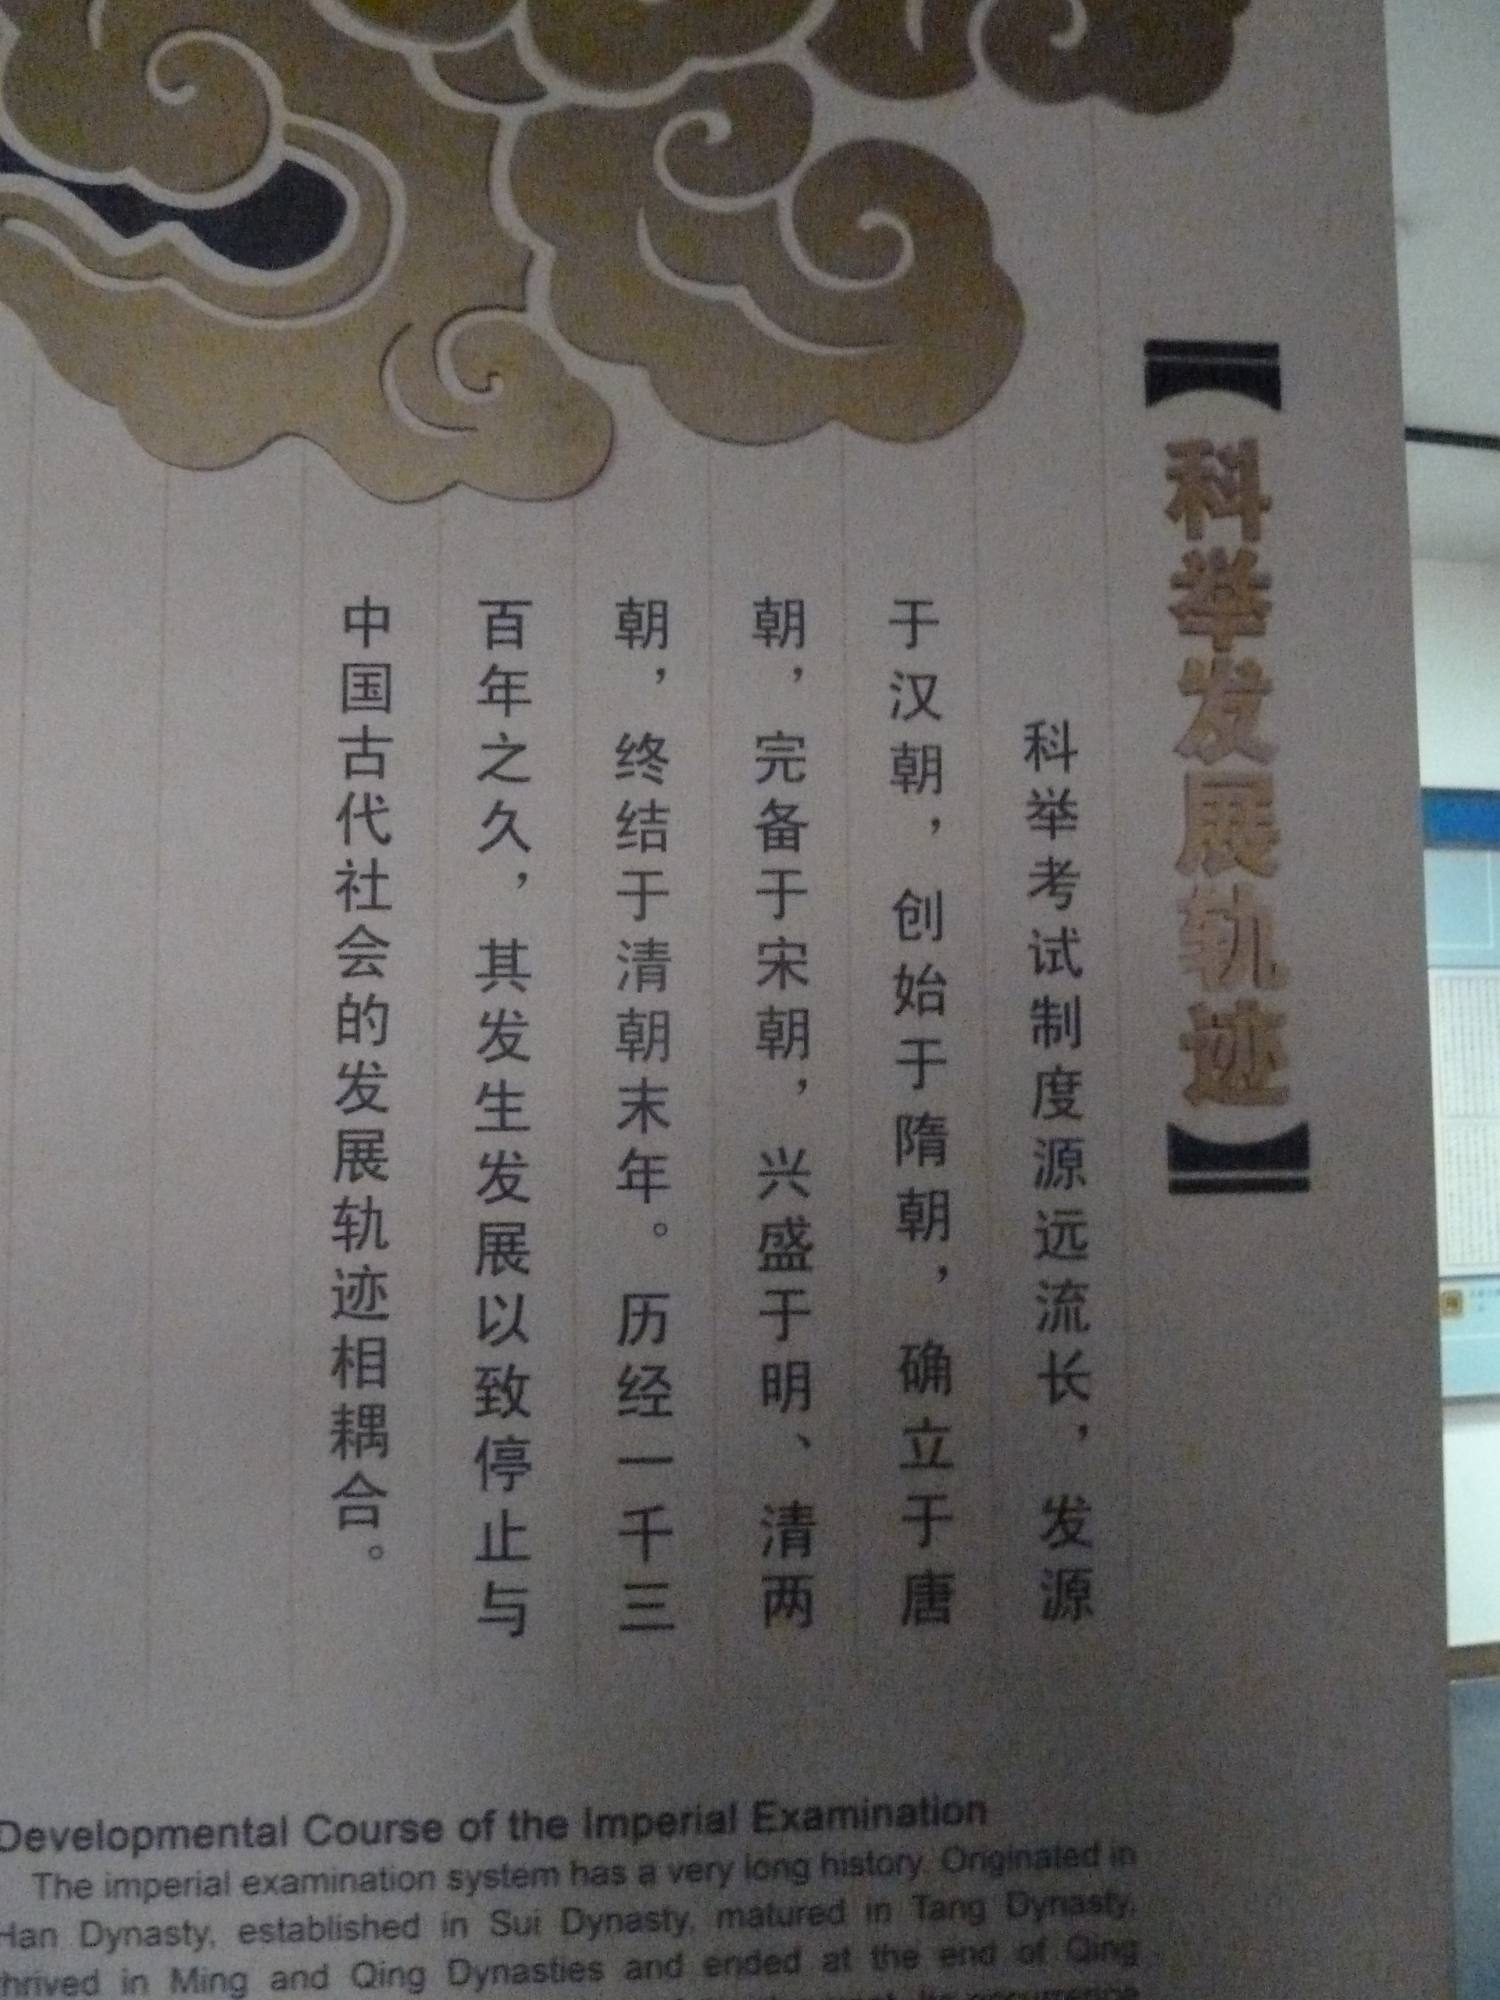 【科举发展轨迹】
科举考试制度源远流长，发源
于汉朝，创始于隋朝，确立于唐
朝，完备于宋朝，兴盛于明、清两
朝，终结于清朝末年。历经一千三
百年之久，其发生发展以致停止与
中国古代社会的发展轨迹相耦合。
Developmental Course of the Imperial Examination
The imperial examination system has a very long history. Originated in
Han Dynasty, established in Sui Dynasty, matured in Tang Dynasty,
thrived in Ming and Qing Dynasties and ended at the end of Qing
Its occurrence